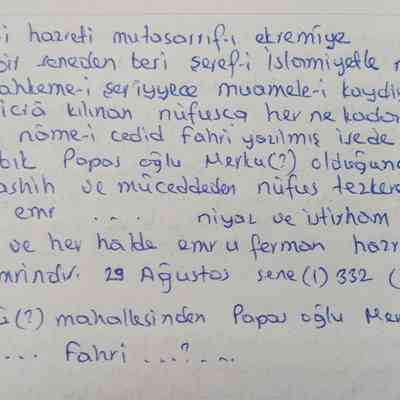 i hazreti mutasarrıf-ı ekremiye
bir seneden beri şeref-i islamiyetle
ahkeme-i şer'iyyece muamele-i kaydiy
icra kılınan nüfusca her ne kadar
nâme-i cedid Fahri yazılmış isede
bık Papas oğlu Merku(?) olduğund
ashih ve müceddeden nüfus tezkere
emr . . . . niyaz ve istirham
ve her halde emr u ferman hazr
mrindir. 29 Ağustos sene (1) 332 (
(?) mahallesinden Papas oğlu Mer
... Fahri ...?...